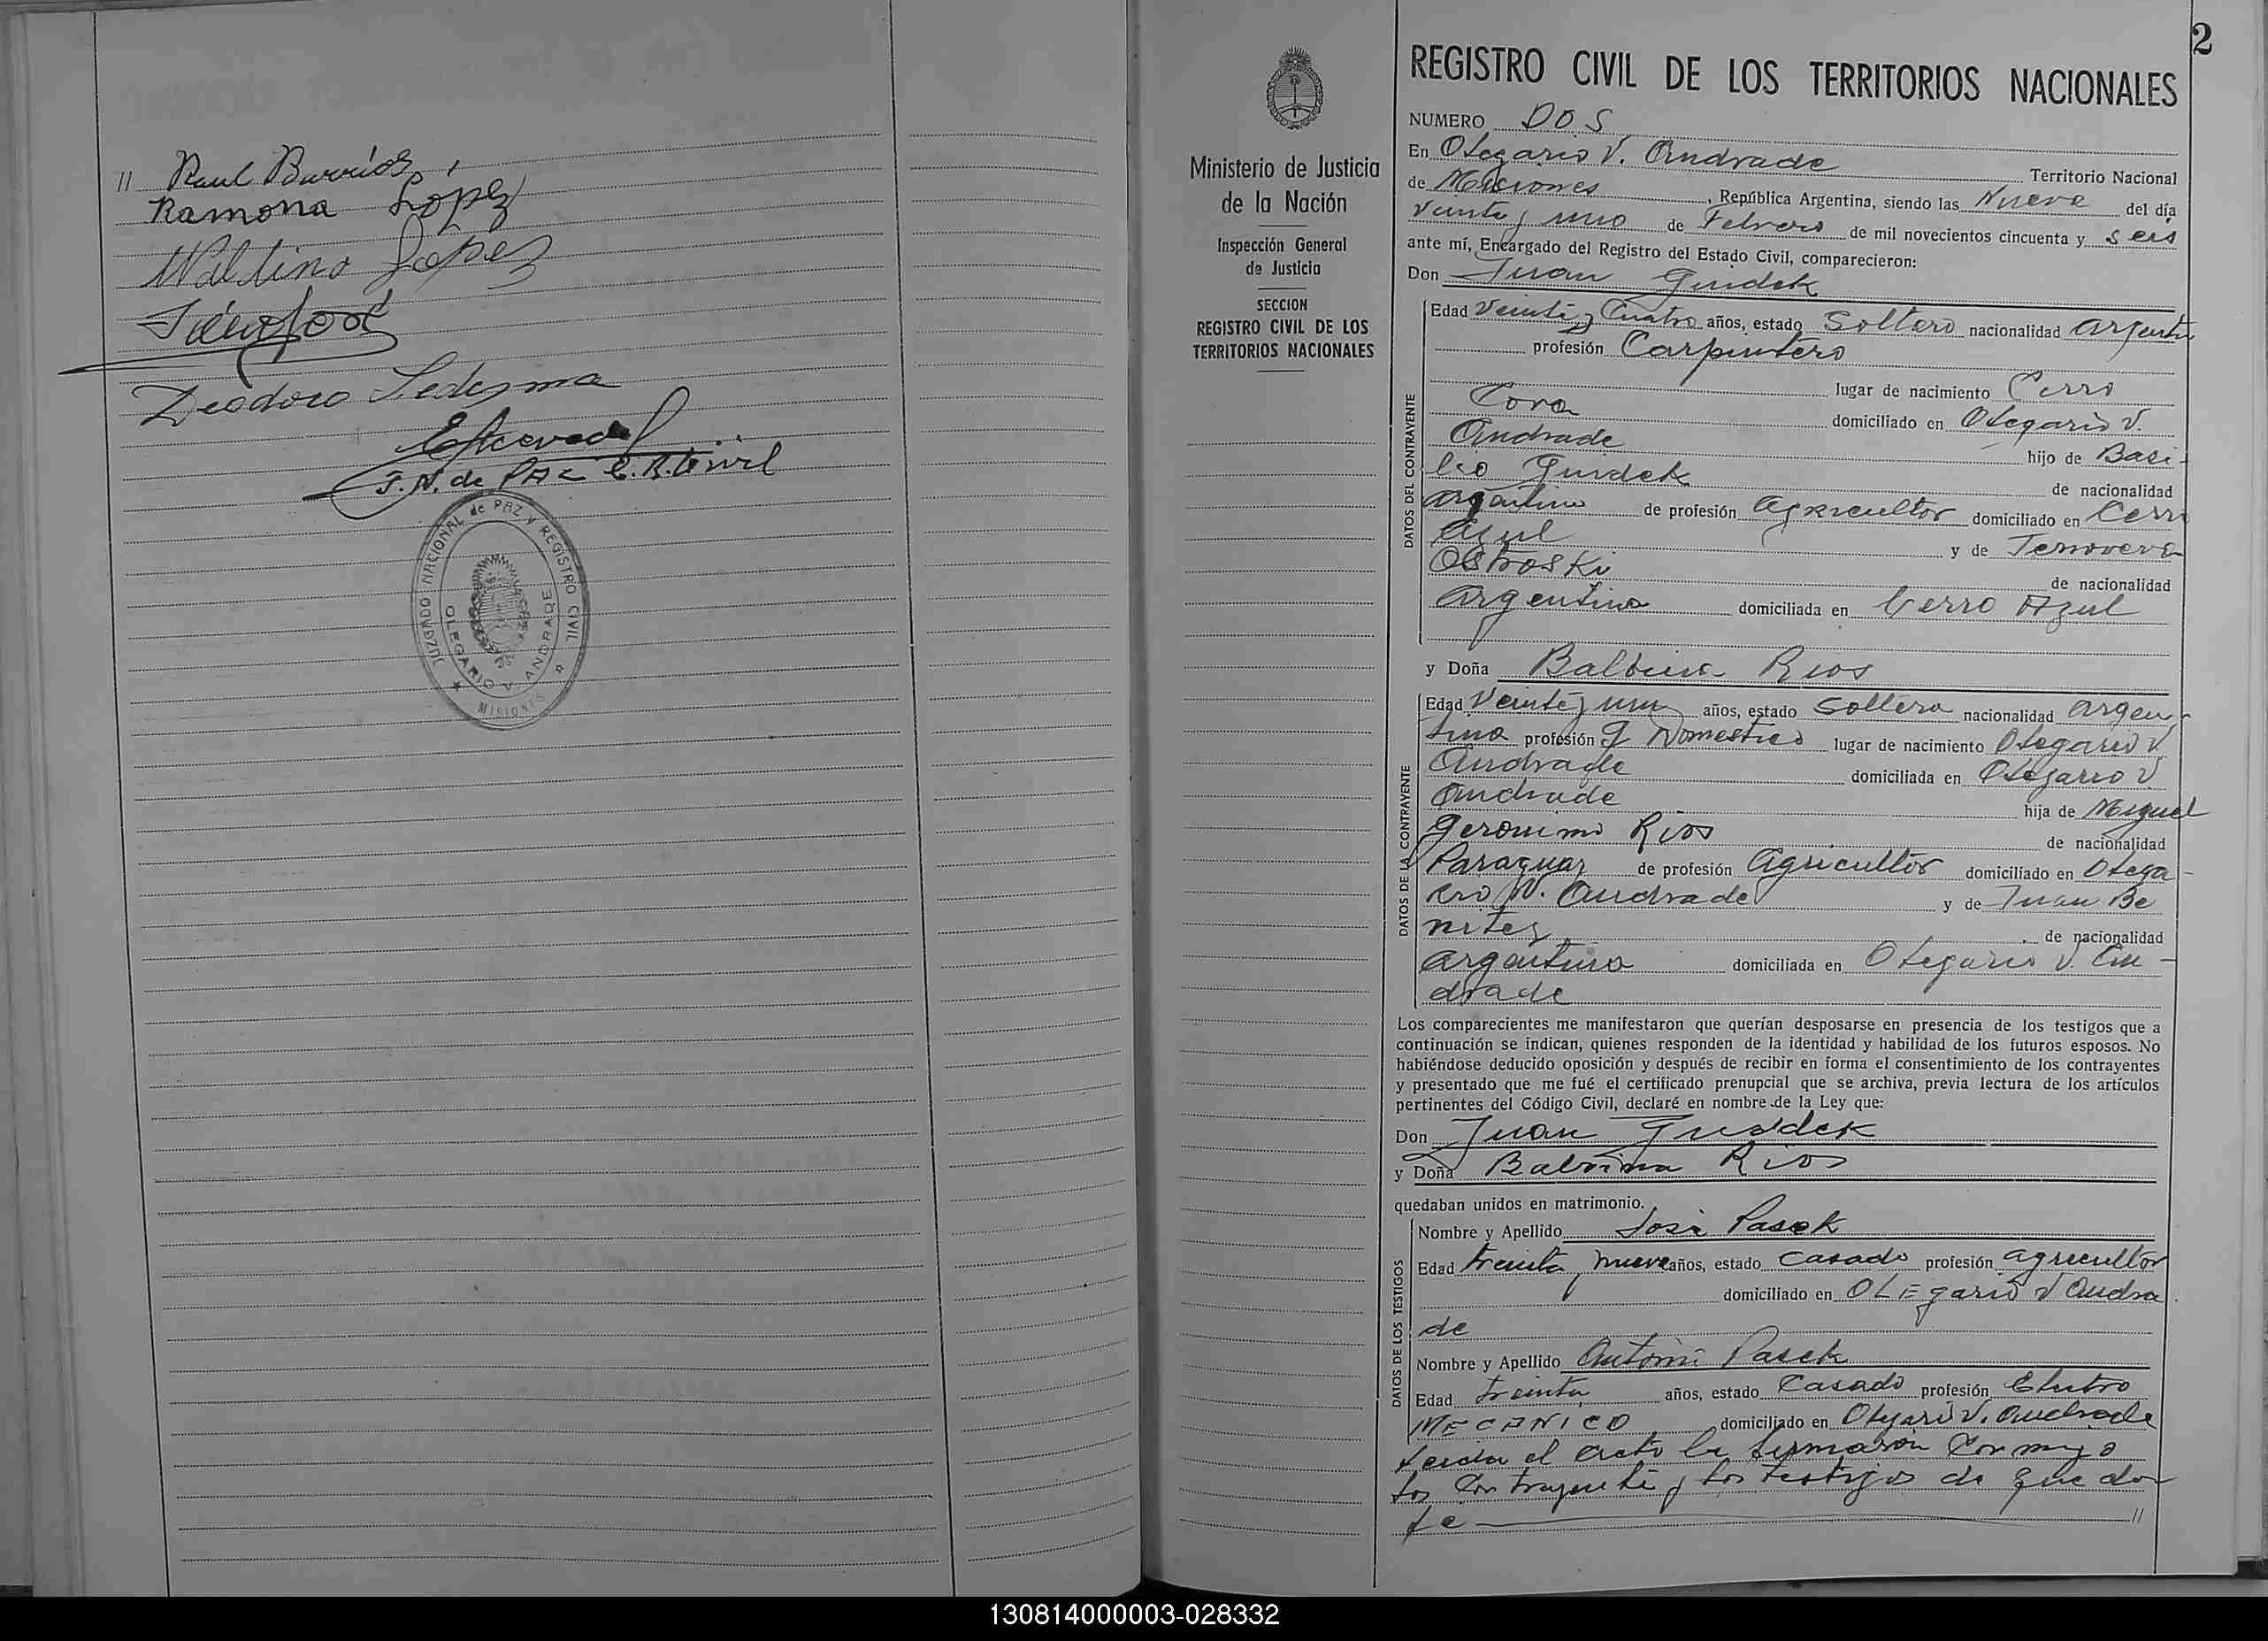 11 Raul Barrios
Ramona López
Waldino Lopez
Teodoro Ledesma
J.N. de PAZ E.R. Civil
JUZGADO NACIONAL de PAZ Y REGISTRO CIVIL
OLEGARIO V. ANDRADE
MISIONES
Ministerio de Justicia
de la Nación
Inspección General
de Justicia
SECCION
REGISTRO CIVIL DE LOS
TERRITORIOS NACIONALES
2
REGISTRO CIVIL DE LOS TERRITORIOS NACIONALES
NUMERO DOS
En Olegario V. Andrade Territorio Nacional
de Misiones, República Argentina, siendo las Nueve del día
veinte y uno de Febrero de mil novecientos cincuenta y seis
ante mí, Encargado del Registro del Estado Civil, comparecieron:
Don Juan Guidek
DATOS DEL CONTRAYENTE
Edad Veinte y Cuatro años, estado Soltero nacionalidad argenti
profesión Carpintero
lugar de nacimiento Cerro
Cora domiciliado en Olegario V.
Andrade hijo de Basi-
lio Guidek de nacionalidad
argentino de profesión agricultor domiciliado en Cerro
Azul y de Jenoveva
Ostroski de nacionalidad
argentina domiciliada en Cerro Azul
y Doña Balbina Rios
DATOS DE LA CONTRAYENTE
Edad Veinte y un años, estado Soltera nacionalidad argen-
tina profesión Q Domestico lugar de nacimiento Olegario V.
Andrade domiciliada en Olegario V
Andrade hija de Miguel
Geronimo Rios de nacionalidad
Paraguay de profesión Agricultor domiciliado en Olega-
rio V. Andrade y de Juan Be
nitez de nacionalidad
argentina domiciliada en Olegario V. An-
drade
Los comparecientes me manifestaron que querían desposarse en presencia de los testigos que a
continuación se indican, quienes responden de la identidad y habilidad de los futuros esposos. No
habiéndose deducido oposición y después de recibir en forma el consentimiento de los contrayentes
y presentado que me fué el certificado prenupcial que se archiva, previa lectura de los artículos
pertinentes del Código Civil, declaré en nombre de la Ley que:
Don Juan Guidek
y Doña Balvina Rios
quedaban unidos en matrimonio.
DATOS DE LOS TESTIGOS
Nombre y Apellido José Pasek
Edad treinta y nueve años, estado Casado profesión agricultor
domiciliado en OLEgario V Andra
de
Nombre y Apellido Antonio Pasek
Edad treinta años, estado Casado profesión Eletro
MECANICO domiciliado en Olegario V. Andrade
Leida el acta la firmaron conmigo
los contrayente y los testigos de que doy
fe 11
130814000003-028332